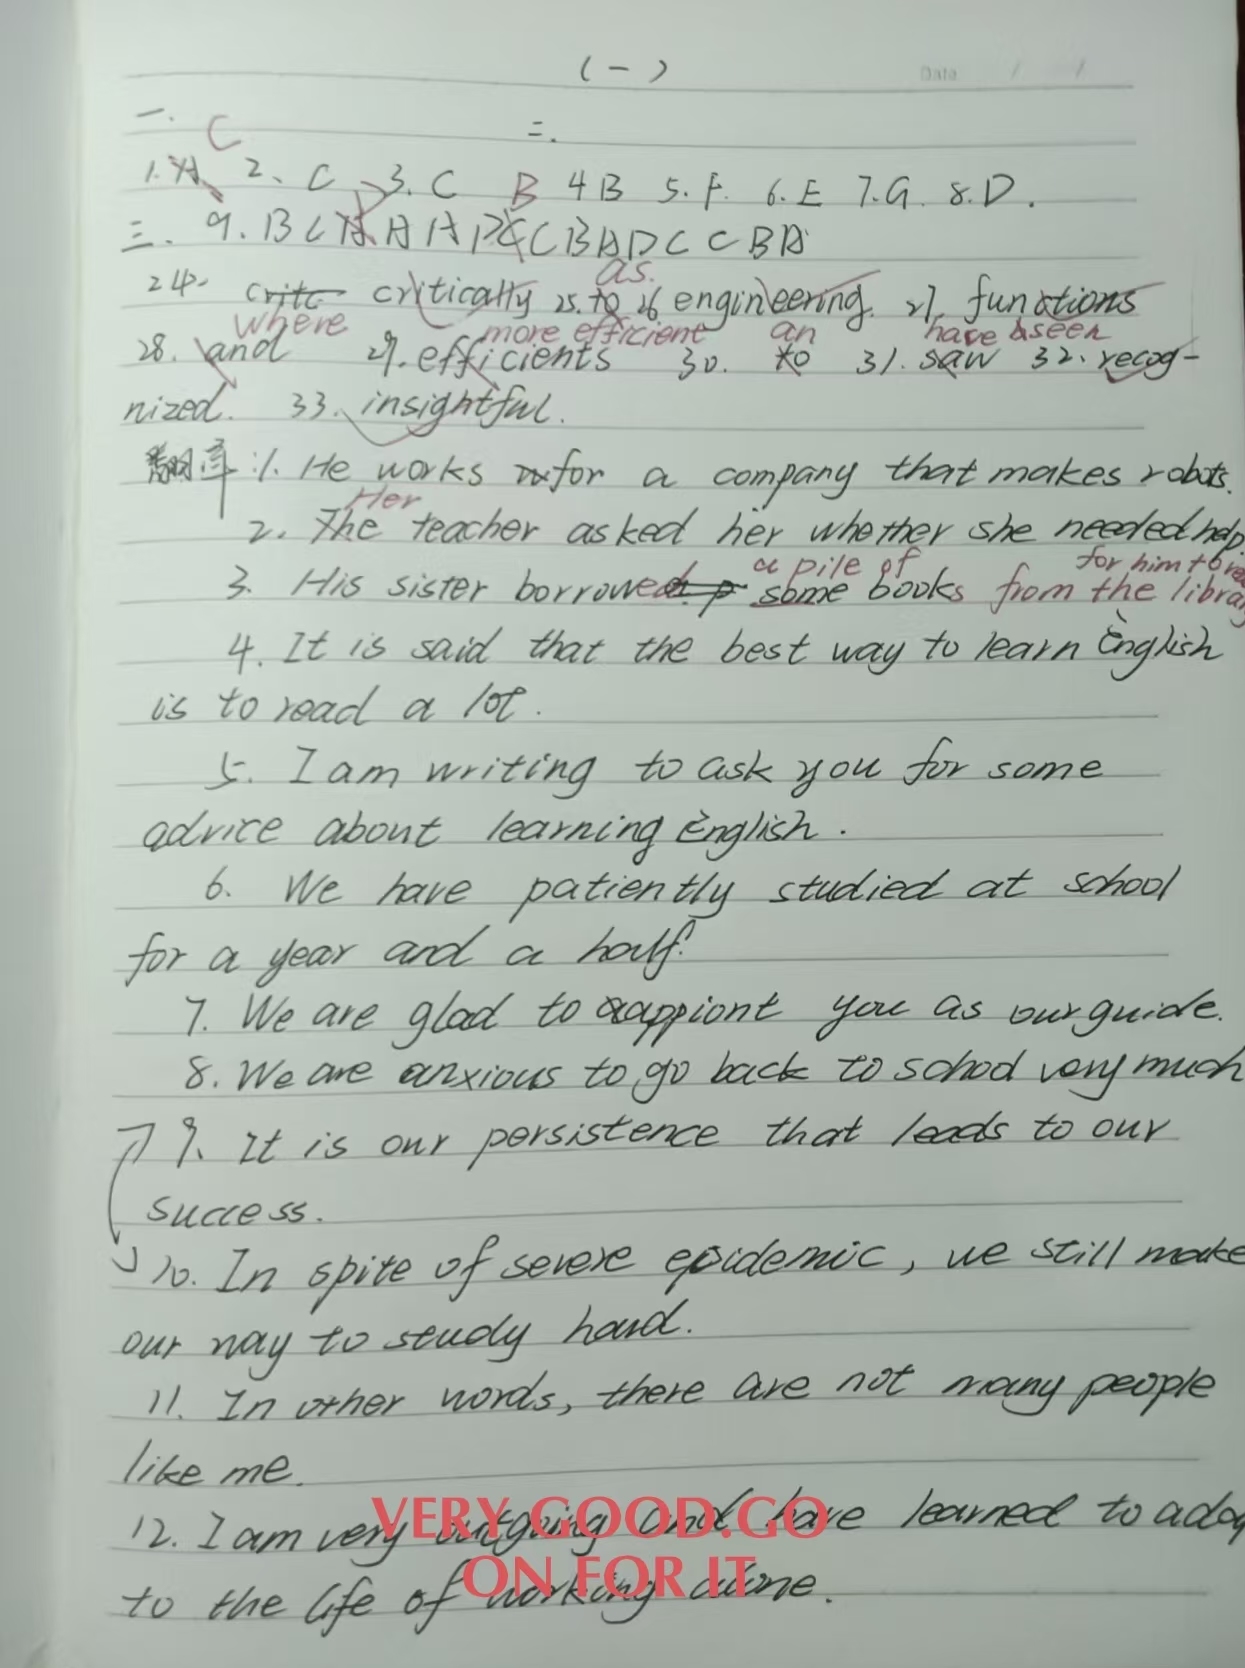 (一)
Date / /
一. C 二.
1. A 2. C 3. C B 4 B 5. F. 6. E 7. G. 8. D.
三. 9. B C A A A D C B A D C C B A
24. critically as 25. to 26 engineering. 27. functions
where more efficient an have seen
28. and 29. efficients 30. to 31. saw 32. recog-
nized. 33. insightful.
翻译: 1. He works for a company that makes robots.
Her
2. The teacher asked her whether she needed help.
a pile of for him to
3. His sister borrowed some books from the
4. It is said that the best way to learn English
is to read a lot.
5. I am writing to ask you for some
advice about learning English.
6. We have patiently studied at school
for a year and a half.
7. We are glad to appiont you as our guide.
8. We are anxious to go back to school very much
9. It is our persistence that leads to our
success.
10. In spite of severe epidemic, we still make
our way to study hard.
11. In other words, there are not many people
like me.
12. I am very outgoing and have learned to
to the life of working alone.
VERY GOOD.GO
ON FOR IT